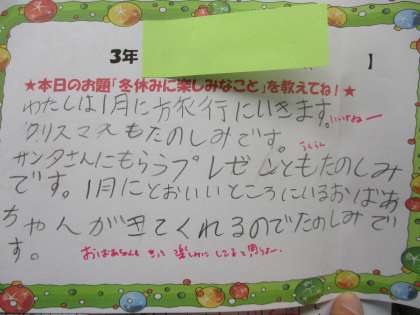 3年
】
★本日のお題「冬休みに楽しみなこと」を教えてね!★
わたしは1月に方旅行にいきます。いいねー
クリスマスもたのしみです。
サンタさんにもらうプレゼントもたのしみ
です。1月にとおいいところにいるおばあ
ちゃんがきてくれるのでたのしみで
す。
おばあちゃんも 楽しみに してると思うよー。